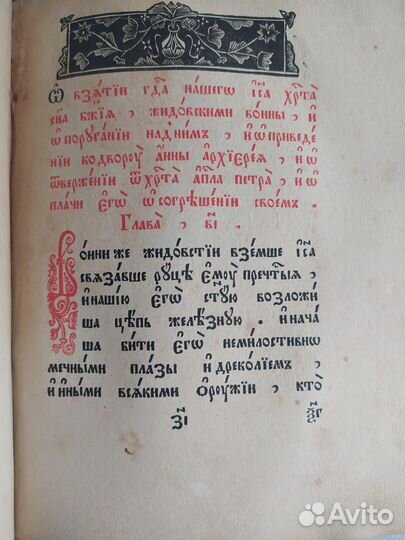 Ѡ взѧтїи гдⷭ҇а нашегѡ і҆са хрⷭ҇та
сн҃а бж҃їѧ , жидовскими вѡины , и҆
ѡ пору́ганїи надни́мъ , и҆ѡ приведе́
нїи кодворꙋ̀ а҆́нны а҆рхїере́ѧ , и҆ѡ
ѿверже́нїи ѿ хрⷭ҇та̀ а҆пⷭ҇ла петра̀ , и҆ѡ
пла́чи є҆гѡ̀ ѡ҆ согрѣше́нїи свое́мъ .
Глава̀ , в҃і .
Во́ини же жидовстїи взе́мше і҆с҃а
свѧза́вше рꙋ́цѣ є҆мꙋ̀ пречⷭ҇тыѧ ,
и҆ на́шїю є҆гѡ̀ ст҃ꙋю возложи́
ша цѣ́пь желѣ́знꙋю . и҆ нача́
ша би́ти є҆гѡ̀ неми́лостивнѡ
ме́чными пла́зы и҆ дреко́лїемъ ,
и҆ и҆ны́ми всѧ́кими ѻ҆рꙋ́жїи , кто̀
з҃і
Avito